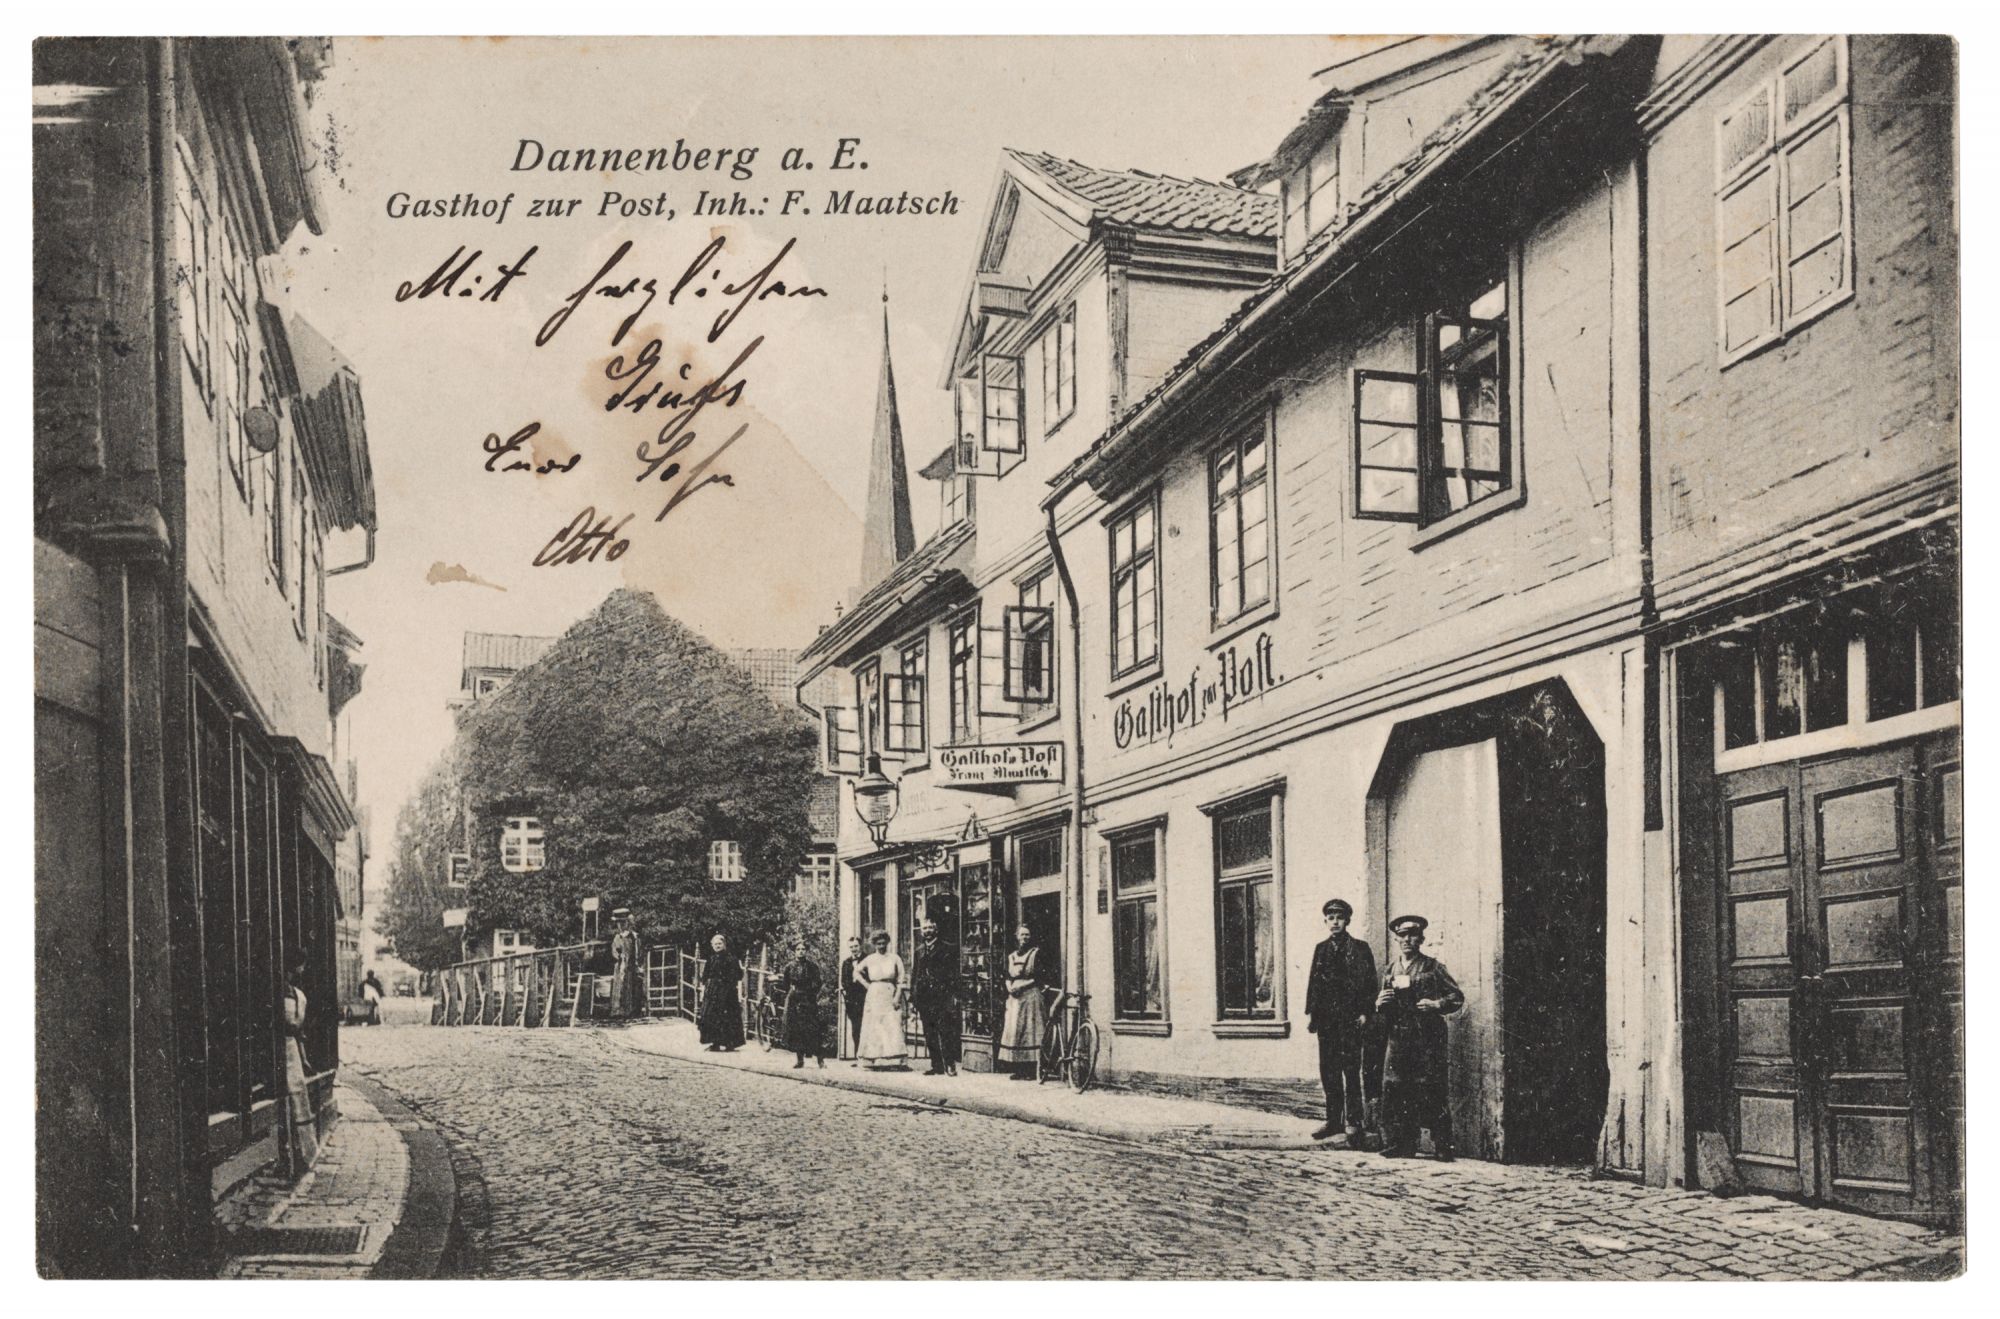 Dannenberg a. E.
Gasthof zur Post, Inh.: F. Maatsch
Mit herzlichen
Gruß
Euer Sohn
Otto
Gasthof zur Post.
Gasthof zur Post
Franz Maatsch.